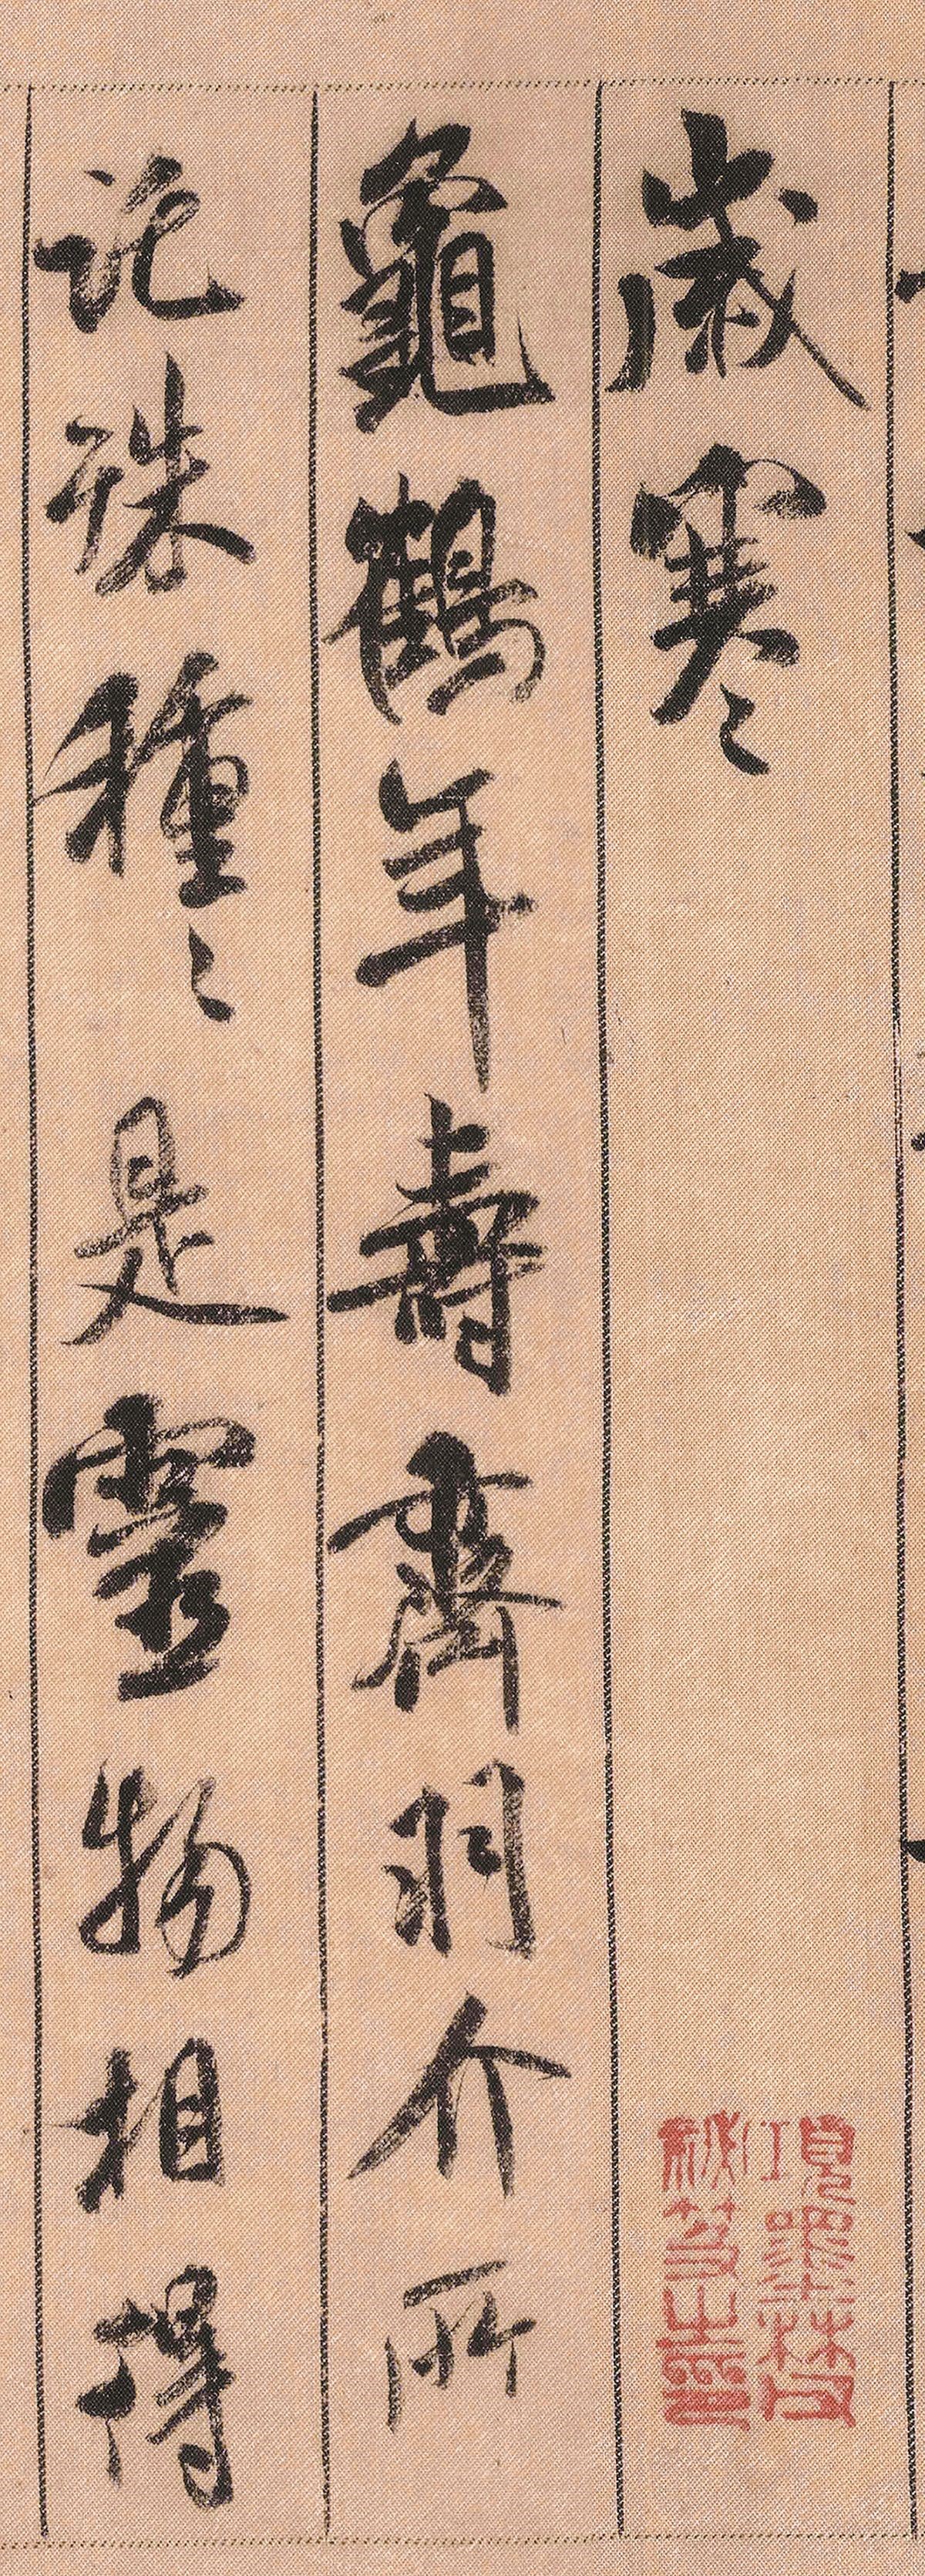 歲寒
龜鶴年壽齊羽介所
託殊種種是靈物相得